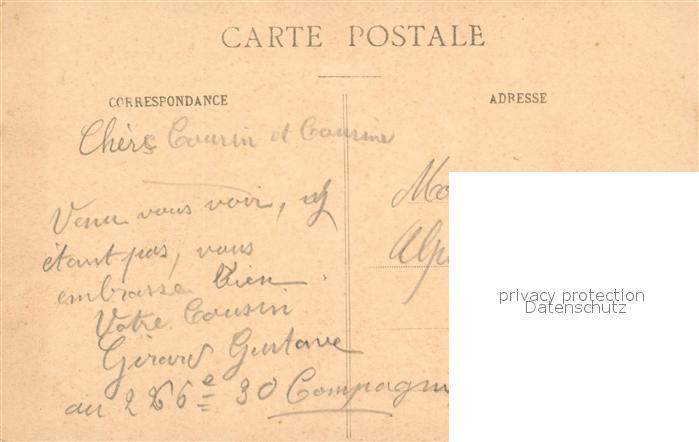 CARTE POSTALE
CORRESPONDANCE
ADRESSE
Chèrs Cousin et Cousine
Venu vous voir,
étant pas, vous
embrasse bien.
Votre Cousin
Girard Gustave
au 226e 30 Compagn
Alp
privacy protection
Datenschutz